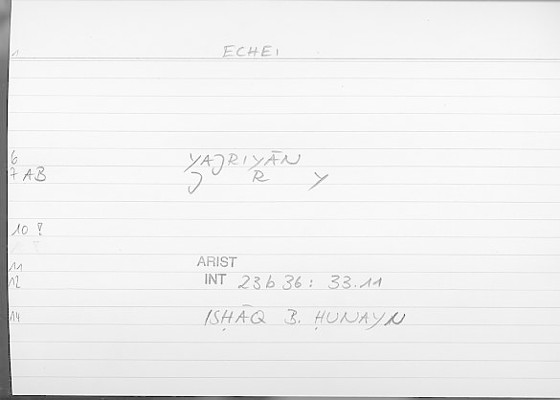 1 ECHEI
6 YAJRIYĀN
7 AB J R Y
10 !
11 ARIST
12 INT 23b 36: 33.11
14 ISḤĀQ B. ḤUNAYN